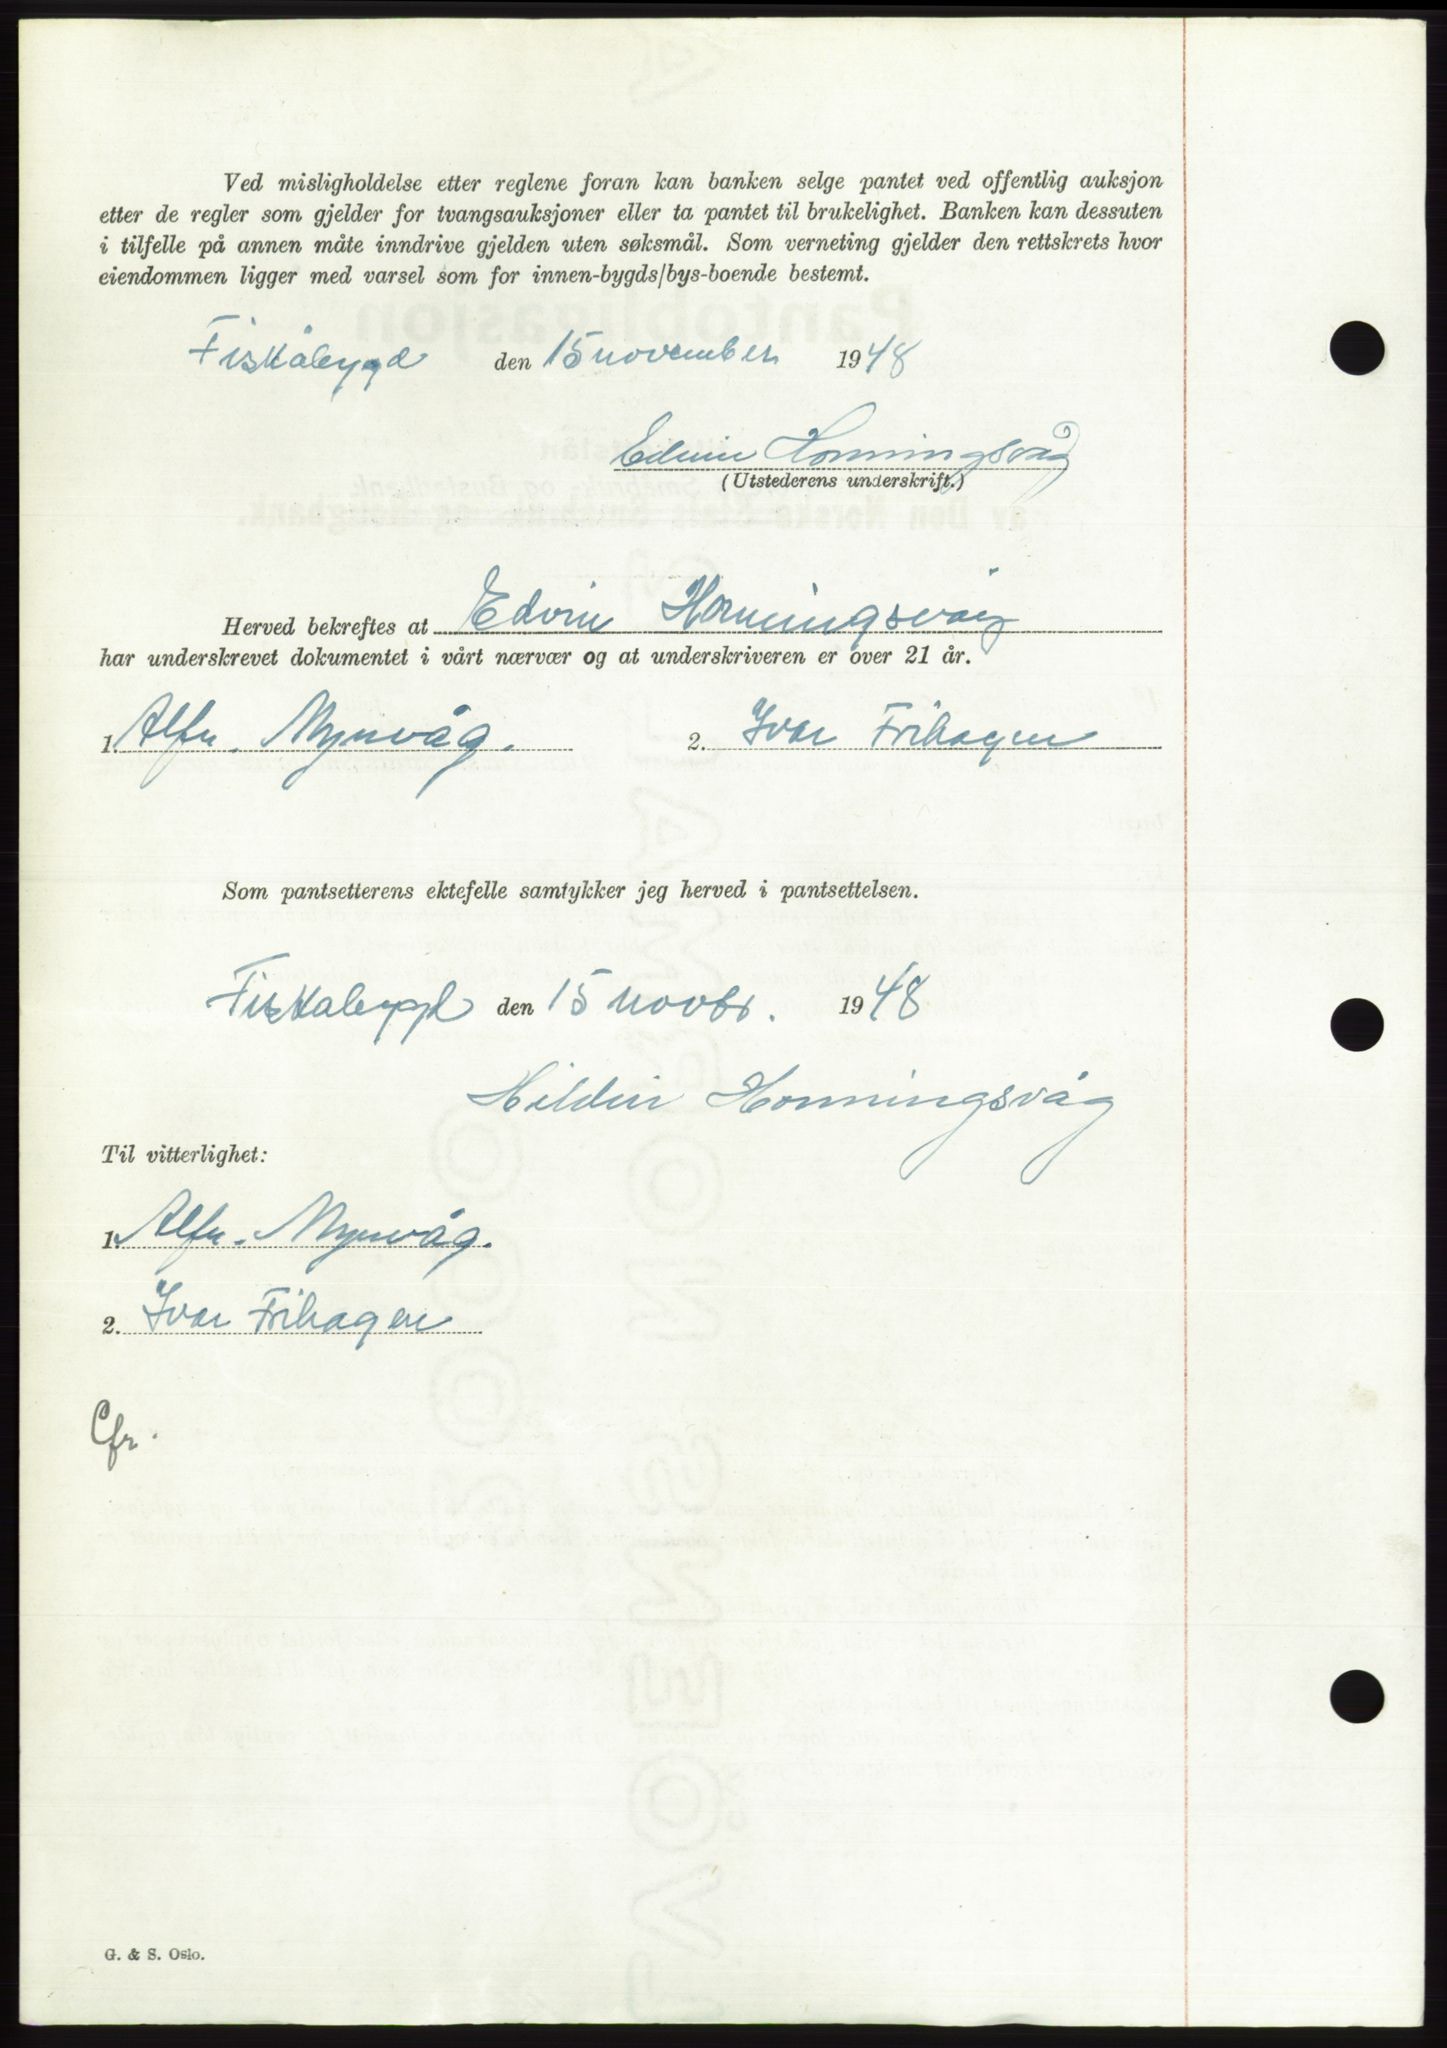 Ved misligholdelse etter reglene foran kan banken selge pantet ved offentlig auksjon
etter de regler som gjelder for tvangsauksjoner eller ta pantet til brukelighet. Banken kan dessuten
i tilfelle på annen måte inndrive gjelden uten søksmål. Som verneting gjelder den rettskrets hvor
eiendommen ligger med varsel som for innen-bygds/bys-boende bestemt.
Fiskåbygd den 15 november 1948
Edvin Honningsvåg
(Utstederens underskrift.)
Herved bekreftes at Edvin Honningsvåg
har underskrevet dokumentet i vårt nærvær og at underskriveren er over 21 år.
1. Alfr. Myrvåg. 2. Ivar Frihagen
Som pantsetterens ektefelle samtykker jeg herved i pantsettelsen.
Fiskabygd den 15 novbr. 1948
Honningsvåg
Til vitterlighet:
1. Alfr. Myrvåg.
2. Ivar Frihagen
Cfr.
G. & S. Oslo.